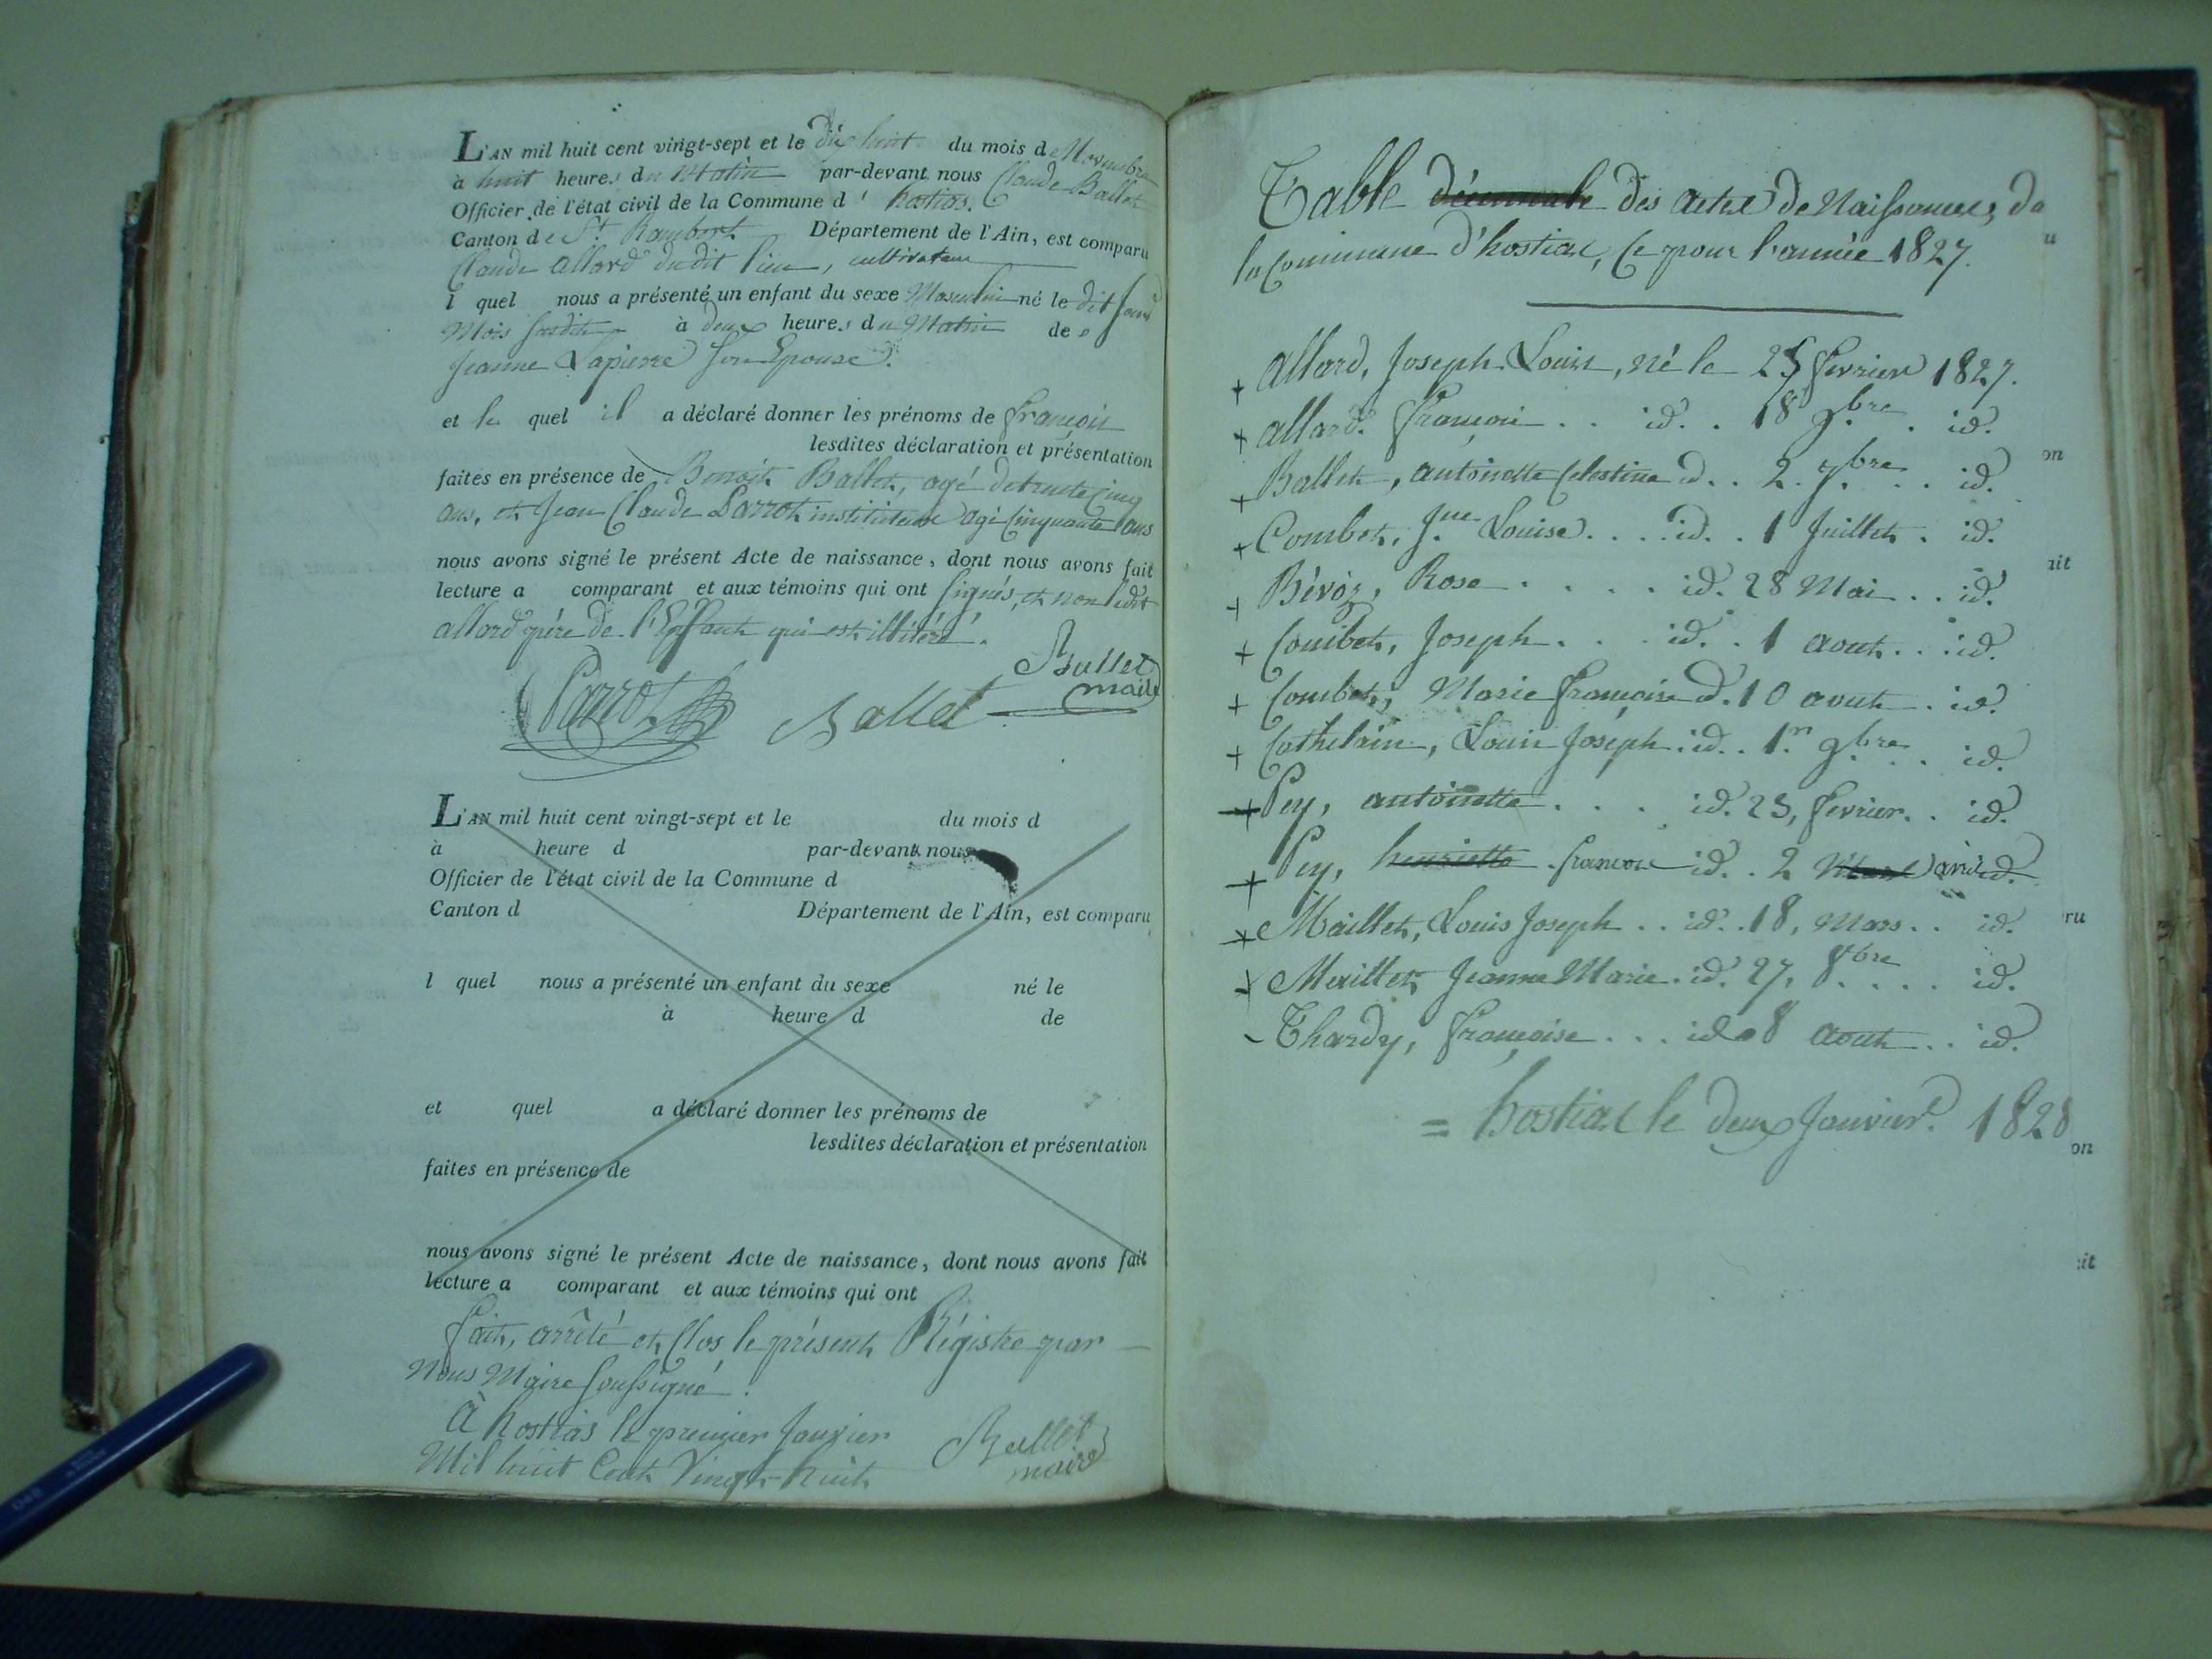 L'AN mil huit cent vingt-sept et le dix huit du mois de Novembre
à huit heures du Matin par-devant nous Claude Ballet
Officier de l'état civil de la Commune d' hostias.
Canton de St. Rambert Département de l'Ain, est comparu
Claude allard dudit lieu, cultivateur
l quel nous a présenté un enfant du sexe Masculin né le dit jour
Mois susdit à deux heures du Matin de
Jeanne Lapierre son Epouse.
et le quel il a déclaré donner les prénoms de françois
lesdites déclaration et présentation
faites en présence de Benoit Ballet, agé de trente cinq
ans, et Jean Claude Parrot instituteur agé Cinquante ans
nous avons signé le présent Acte de naissance, dont nous avons fait
lecture a comparant et aux témoins qui ont signés, et non ledit
allard père de l'Enfant qui est illitéré.
Parrot Ballet Ballet
maire
L'AN mil huit cent vingt-sept et le du mois d
à heure d par-devant nous
Officier de l'état civil de la Commune d
Canton d Département de l'Ain, est comparu
l quel nous a présenté un enfant du sexe né le
à heure d de
et quel a déclaré donner les prénoms de
lesdites déclaration et présentation
faites en présence de
nous avons signé le présent Acte de naissance, dont nous avons fait
lecture a comparant et aux témoins qui ont
fait, arrêté et Clos le présent Régistre par
Nous Maire soussigné.
à hostias le premier Janvier
Mil huit Cent Vingt-huit
Ballet
maire
Table décennale des actes de Naissances, de
la Commune d'hostiaz, Ce pour l'année 1827.
+ allard, Joseph Louis, né le 25 fevrier 1827.
+ allard. françois . . id. . 18 9.bre . id.
+ Ballet, antoinette Celestine id . . 2. 7.bre . . id.
+ Combet, J.ne Louise . . . . id. . 1 Juillet . id.
+ Bévoz, Rose . . . . id. 28 Mai . . id.
+ Combet, Joseph . . . id. . 1 aout . . id.
+ Combet, Marie françoise id. 10 aout . id.
+ Cathelain, Louis Joseph . id. . 1.er 9.bre . . id.
+ Pey, antoinette . . . id. 25, fevrier . . id.
+ Pey, henriette françoise id. . 2 Mars avril id.
+ Maillet, Louis Joseph . . id. . 18, Mars . . id.
+ Maillet, Jeanne Marie . id. 27, 8.bre . . . id.
- Thardy, françoise . . . id 8 aout . . id.
= hostiaz le deux Janvier. 1828
u
on
ait
ru
on
it